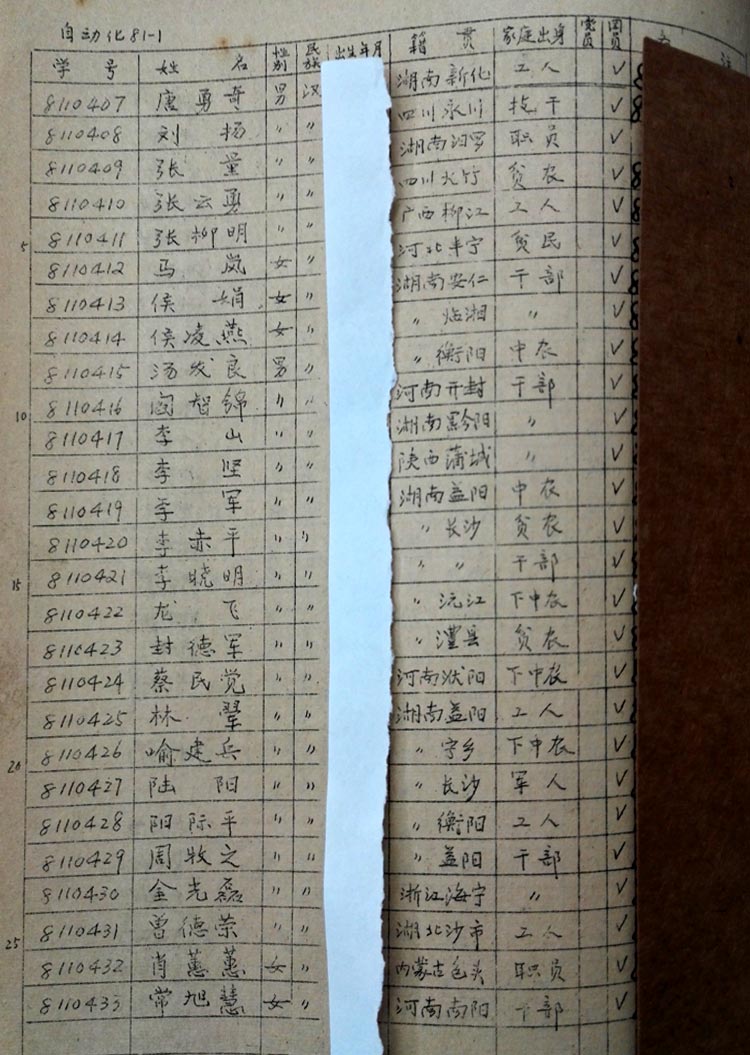 自动化81-1
学号 姓名 性别 民族 出生年月 籍贯 家庭出身 党员 团员
8110407 唐勇奇 男 汉 湖南新化 工人 ✓
8110408 刘扬 〃 〃 四川永川 技干 ✓
8110409 张量 〃 〃 湖南汨罗 职员 ✓
8110410 张云勇 〃 〃 四川大竹 贫农 ✓
5 8110411 张柳明 〃 〃 广西柳江 工人 ✓
8110412 马岚 女 〃 河北丰宁 贫民 ✓
8110413 侯娟 女 〃 湖南安仁 干部 ✓
8110414 侯凌燕 女 〃 〃临湘 〃 ✓
8110415 汤发良 男 〃 〃衡阳 中农 ✓
10 8110416 阎智锦 〃 〃 河南开封 干部 ✓
8110417 李山 〃 〃 湖南黔阳 〃 ✓
8110418 李坚 〃 〃 陕西蒲城 〃 ✓
8110419 李军 〃 〃 湖南益阳 中农 ✓
8110420 李赤平 〃 〃 〃长沙 贫农 ✓
15 8110421 李晓明 〃 〃 〃 〃 干部 ✓
8110422 龙飞 〃 〃 〃沅江 下中农 ✓
8110423 封德军 〃 〃 〃澧县 贫农 ✓
8110424 蔡民觉 〃 〃 河南濮阳 下中农 ✓
8110425 林翚 〃 〃 湖南益阳 工人 ✓
20 8110426 喻建兵 〃 〃 〃宁乡 下中农 ✓
8110427 陆阳 〃 〃 〃长沙 军人 ✓
8110428 阳际平 〃 〃 〃衡阳 工人 ✓
8110429 周牧之 〃 〃 〃益阳 干部 ✓
8110430 金光磊 〃 〃 浙江海宁 〃 ✓
25 8110431 曾德荣 〃 〃 湖北沙市 工人 ✓
8110432 肖蕙蕙 女 〃 内蒙古包头 职员 ✓
8110433 常旭慧 女 〃 河南南阳 干部 ✓